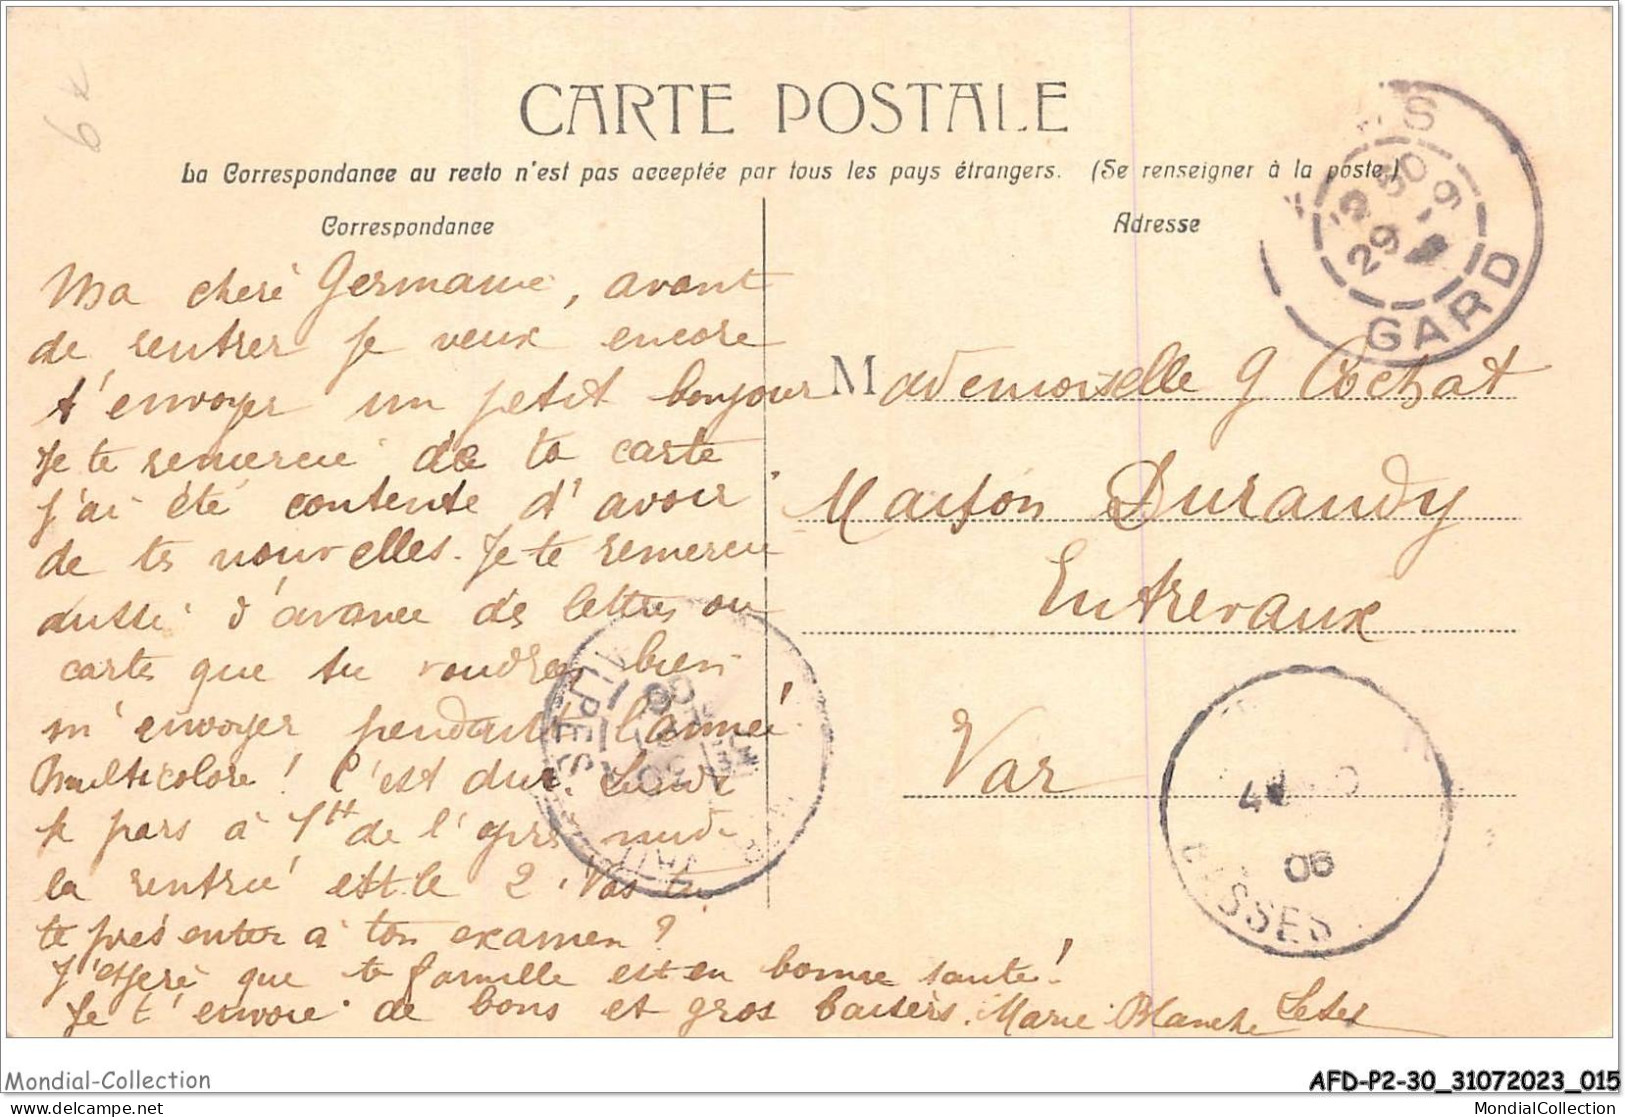 6
CARTE POSTALE
La Correspondance au recto n'est pas acceptée par tous les pays étrangers. (Se renseigner à la poste.)
Correspondance
Ma cheré Germaine, avant
de rentrer je veux encore
t'envoyer un petit bonjour
Je te remercie de ta carte
j'ai été contente d'avoir
de ts nouvelles. Je te remercie
aussi d'avance des lettres ou
cartes que tu voudras bien
m'envoyer pendant l'année
Multicolore ! C'est dur. Lundi
je pars à 1H de l'après midi
la rentrée est le 2. Vas tu
te présenter à ton examen ?
J'espere que ta famille est en bonne santé !
Je t'envoie de bons et gros baisers. Marie Blanche
Adresse
Mademoiselle G Cochat
Maison Durandy
Entrevaux
Var
S
29 -9
GARD
ALPES
06
Mondial-Collection
AFD-P2-30_31072023_015
www.delcampe.net
MondialCollection